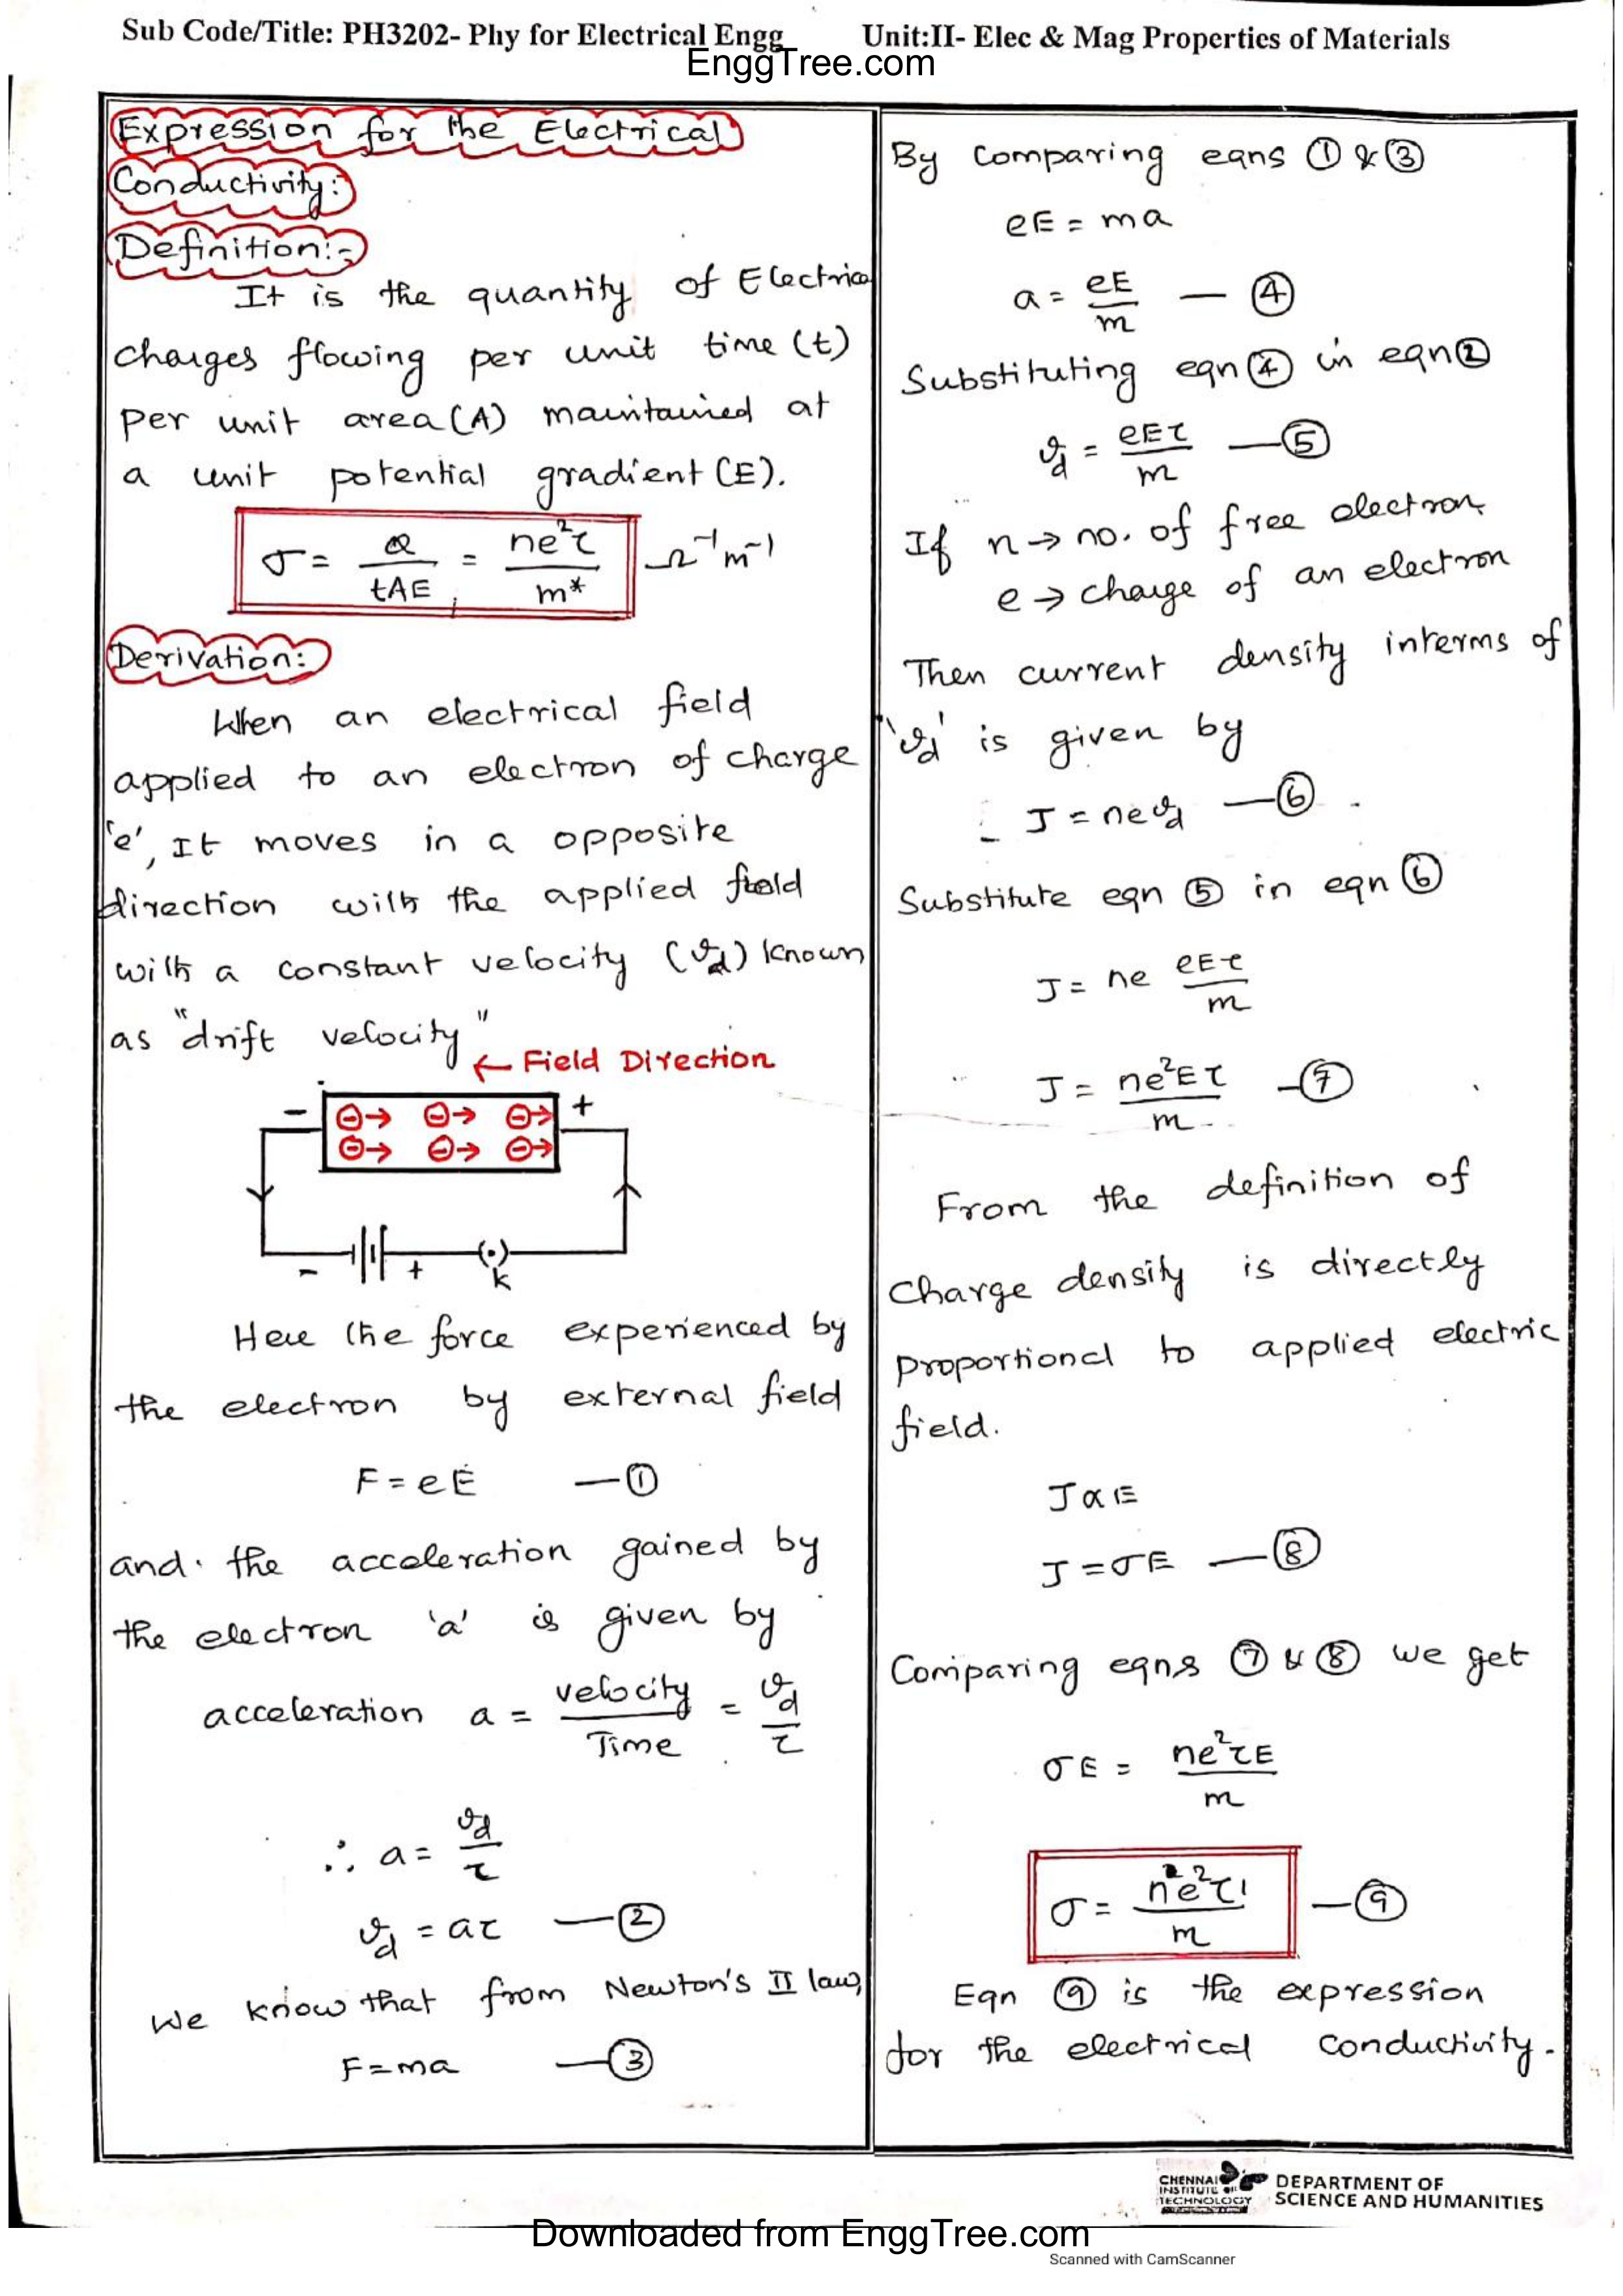 Sub Code/Title: PH3202- Phy for Electrical Engg Unit:II- Elec & Mag Properties of Materials
EnggTree.com
Expression for the Electrical
Conductivity:
Definition:-
It is the quantity of Electrical
charges flowing per unit time (t)
per unit area (A) maintained at
a unit potential gradient (E).
σ = Q/tAE = ne²τ/m* Ω⁻¹m⁻¹
Derivation:
When an electrical field
applied to an electron of charge
'e', It moves in a opposite
direction with the applied field
with a constant velocity (vd) known
as "drift velocity"
← Field Direction
- ⊖→ ⊖→ ⊖→ +
⊖→ ⊖→ ⊖→
- + K
Here the force experienced by
the electron by external field
F = eE — ①
and the acceleration gained by
the electron 'a' is given by
acceleration a = velocity/Time = vd/τ
∴ a = vd/τ
vd = aτ — ②
We know that from Newton's II law,
F = ma — ③
By comparing eqns ① & ③
eE = ma
a = eE/m — ④
Substituting eqn ④ in eqn ②
vd = eEτ/m — ⑤
If n → no. of free electron
e → charge of an electron
Then current density interms of
'vd' is given by
J = nevd — ⑥
Substitute eqn ⑤ in eqn ⑥
J = ne eEτ/m
J = ne²Eτ/m — ⑦
From the definition of
Charge density is directly
proportional to applied electric
field.
J ∝ E
J = σE — ⑧
Comparing eqns ⑦ & ⑧ we get
σE = ne²τE/m
σ = ne²τ/m — ⑨
Eqn ⑨ is the expression
for the electrical conductivity.
CHENNAI
INSTITUTE OF
TECHNOLOGY
DEPARTMENT OF
SCIENCE AND HUMANITIES
Downloaded from EnggTree.com
Scanned with CamScanner